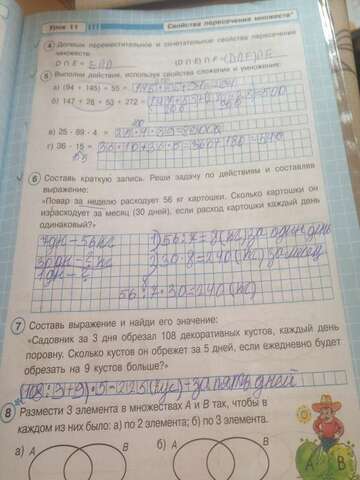 Урок 11
Свойства пересечения множеств
4 Допиши переместительное и сочетательное свойства пересечения
множеств:
5 Выполни действия, используя свойства сложения и умножения:
а) (94 + 145) + 55 =
б) 147 + 28 + 53 + 272 =
в) 25 · 89 · 4 =
г) 36 · 15 =
6 Составь краткую запись. Реши задачу по действиям и составляя
выражение:
«Повар за неделю расходует 56 кг картошки. Сколько картошки он
израсходует за месяц (30 дней), если расход картошки каждый день
одинаковый?»
7 дн – 56 кг 1) 56:7=8 (кг) за один день
30 дн – ? кг 2) 30·8=240 (кг) за месяц
1 дн – ?
56:7·30=240 (кг)
7 Составь выражение и найди его значение:
«Садовник за 3 дня обрезал 108 декоративных кустов, каждый день
поровну. Сколько кустов он обрежет за 5 дней, если ежедневно будет
обрезать на 9 кустов больше?»
(108:3+9)·5=225 (кус) – за пять дней
8 Размести 3 элемента в множествах А и В так, чтобы в
каждом из них было: а) по 2 элемента; б) по 3 элемента.
а) А В б) А В
А В